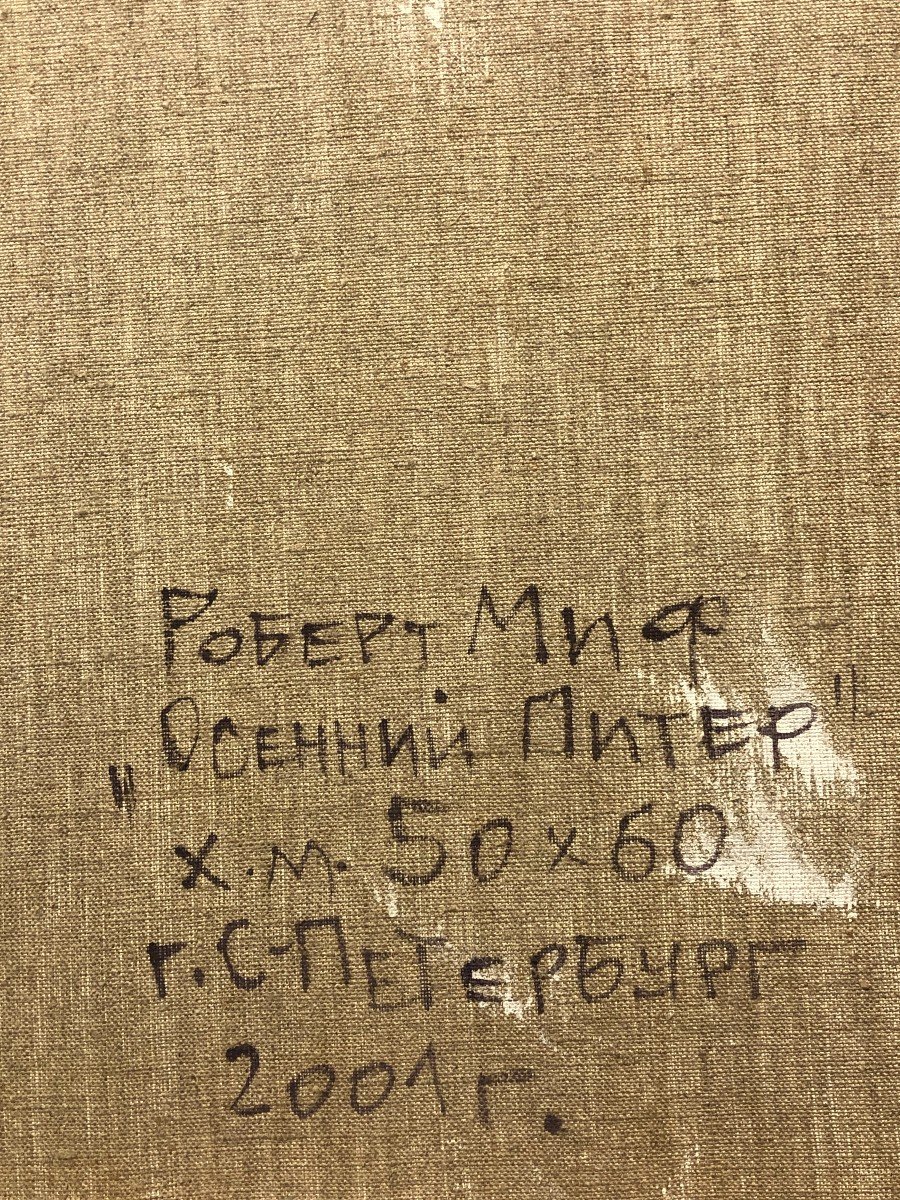 Роберт Миф
„Осенний Питер"
х.м. 50х60
г. С-Петербург
2001 г.